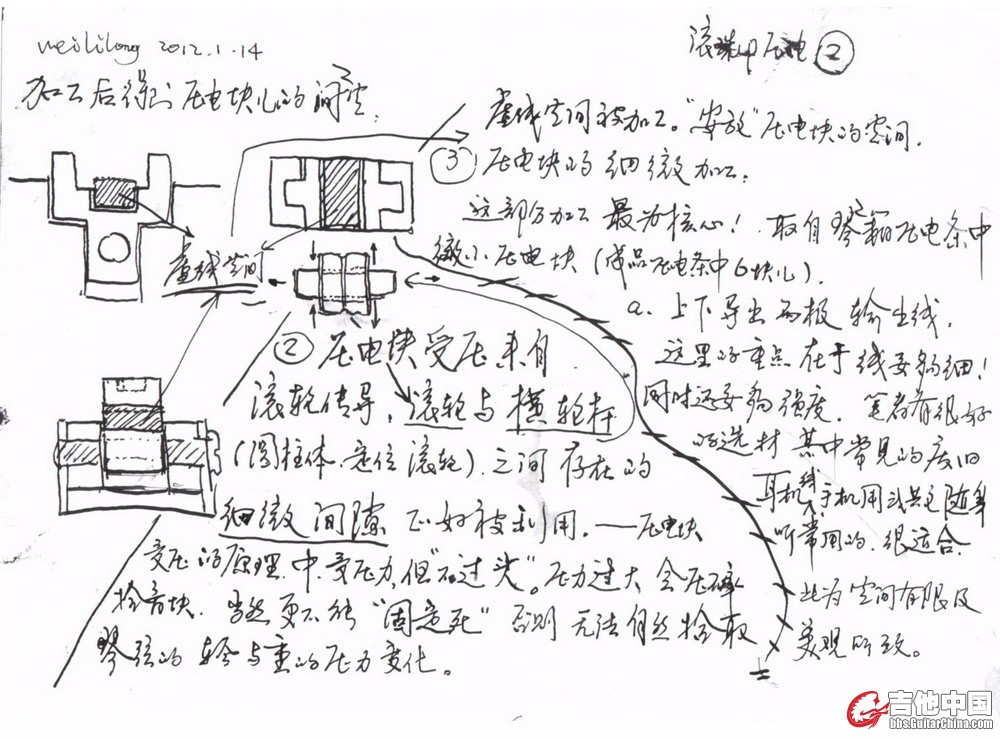 weililong 2012.1.14
滚珠 压电 ②
加工后得到 压电块儿的 间空
虚线空间被加工。"安放"压电块的空间.
③ 压电块的 细微 加工.
这部分加工 最为核心! 取自 琴 压电条中
微小 压电块 (成品压电条中6块儿).
虚线空间
a. 上下导出 两极 输出线.
这里的重点 在于 线要够细!
同时还要够强度. 笔者有很好
的选材 其中常见的废旧
耳机线 手机用 或者是随身
听常用的. 很适合.
此为空间有限及
美观所致。
② 压电块受压来自
滚轮传导. 滚轮与 横轮杆
(圆柱体.定位滚轮). 之间 存在的
细微 间隙 正好被利用. —— 压电块
受压的原理. 中. 受压力 但"不过头". 压力过大 会压碎
拾音块. 当然 更不能 "固定死" 否则 无法自然拾取
琴弦的 轻与重的压力变化。
吉他中国
bbs.GuitarChina.com